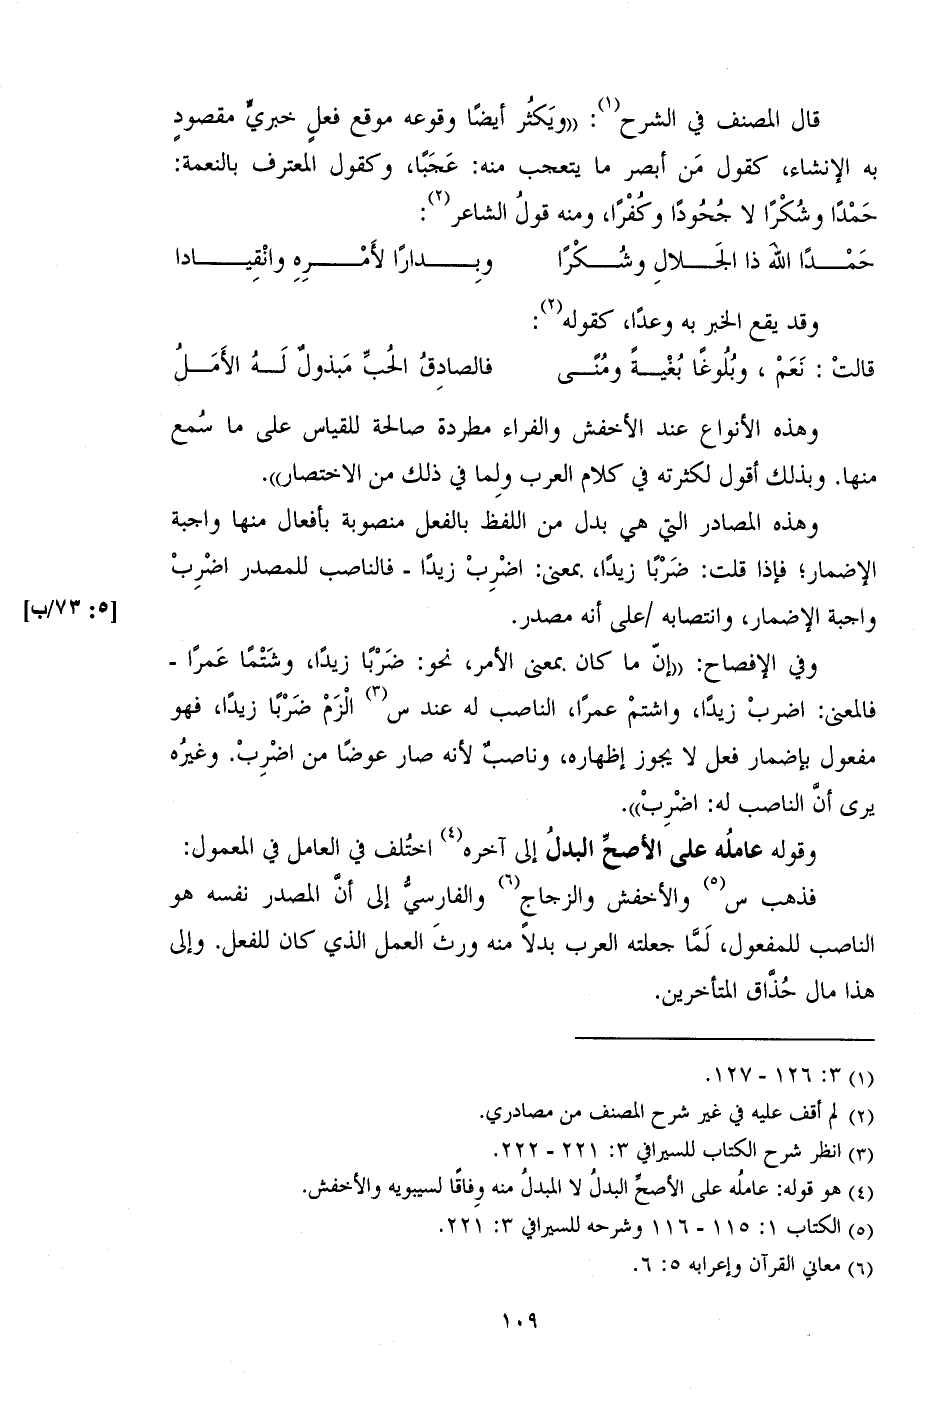 قال المصنف في الشرح(١): ((ويَكثُر أيضًا وقوعه موقع فعلٍ خبريٍّ مقصودٍ
به الإنشاء، كقول مَن أبصر ما يتعجب منه: عَجَبًا، وكقول المعترف بالنعمة:
حَمْدًا وشُكْرًا لا جُحُودًا وكُفْرًا، ومنه قولُ الشاعر(٢):
حَمْــدًا اللهَ ذا الجَــلالِ وشُــكْرًا وبِــدارًا لأَمْــرِهِ وانْقِيــادا
وقد يقع الخبر به وعدًا، كقوله(٢):
قالتْ : نَعَمْ ، وبُلُوغًا بُغْيــةً ومُنًــى فالصادِقُ الحُبِّ مَبذولٌ لَــهُ الأَمَــلُ
وهذه الأنواع عند الأخفش والفراء مطردة صالحة للقياس على ما سُمع
منها. وبذلك أقول لكثرته في كلام العرب ولِما في ذلك من الاختصار)).
وهذه المصادر التي هي بدل من اللفظ بالفعل منصوبة بأفعال منها واجبة
الإضمار؛ فإذا قلت: ضَرْبًا زيدًا، بمعنى: اضْرِبْ زيدًا - فالناصب للمصدر اضْرِبْ
واجبة الإضمار، وانتصابه /على أنه مصدر.
[٥: ٧٣/ب]
وفي الإفصاح: ((إنّ ما كان بمعنى الأمر، نحو: ضَرْبًا زيدًا، وشَتْمًا عَمرًا -
فالمعنى: اضربْ زيدًا، واشتمْ عمرًا، الناصب له عند س(٣) الْزَمْ ضَرْبًا زيدًا، فهو
مفعول بإضمار فعل لا يجوز إظهاره، وناصبٌ لأنه صار عوضًا من اضْرِبْ. وغيرُه
يرى أنَّ الناصب له: اضْرِبْ)).
وقوله عاملُه على الأصحِّ البدلُ إلى آخره(٤) اختُلف في العامل في المعمول:
فذهب س(٥) والأخفش والزجاج(٦) والفارسيُّ إلى أنَّ المصدر نفسه هو
الناصب للمفعول، لَمَّا جعلته العرب بدلاً منه ورثَ العمل الذي كان للفعل. وإلى
هذا مال حُذَّاق المتأخرين.
(١) ٣: ١٢٦ - ١٢٧.
(٢) لم أقف عليه في غير شرح المصنف من مصادري.
(٣) انظر شرح الكتاب للسيرافي ٣: ٢٢١ - ٢٢٢.
(٤) هو قوله: عاملُه على الأصحِّ البدلُ لا المبدلُ منه وِفاقًا لسيبويه والأخفش.
(٥) الكتاب ١: ١١٥ - ١١٦ وشرحه للسيرافي ٣: ٢٢١.
(٦) معاني القرآن وإعرابه ٥: ٦.
١٠٩